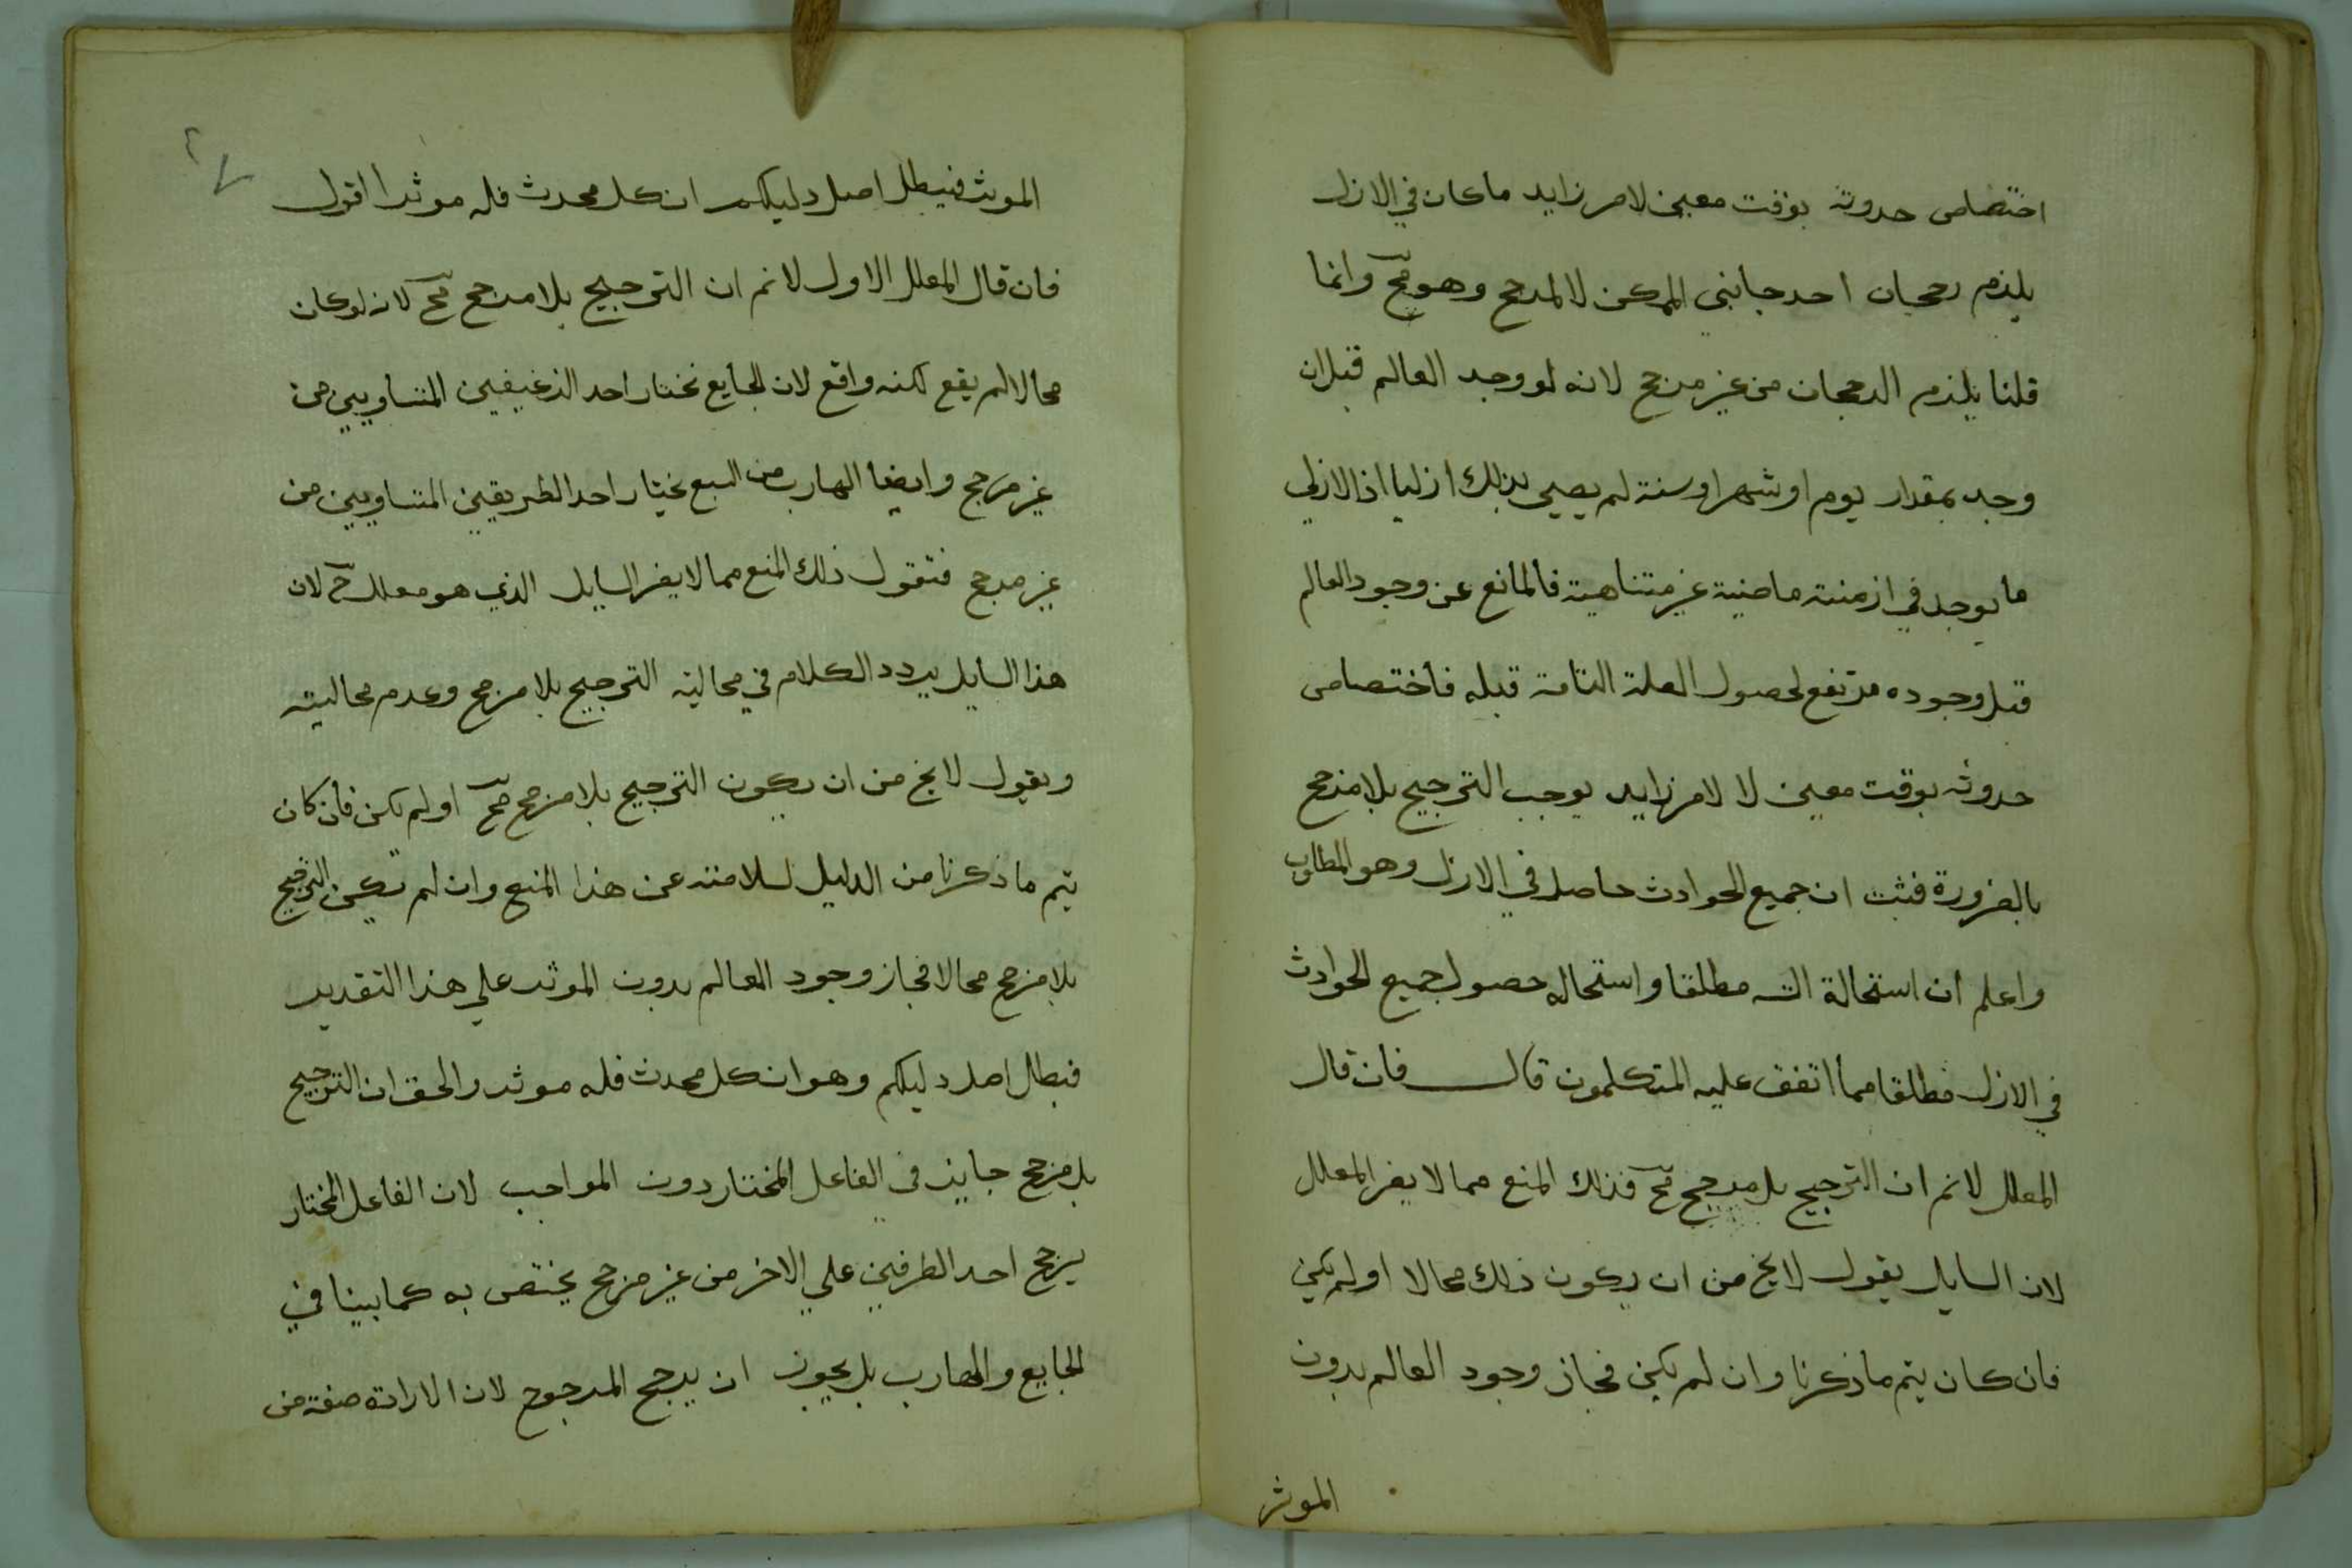 اختصاص حدوثه بوقت معين لامر زايد ما كان في الازل
يلزم رجحان احد جانبي الممكن لا لمرجح وهو مح وانما
قلنا يلزم الرجحان من غير مرجح لانه لو وجد العالم قبل ان
وجد بمقدار يوم او شهر او سنة لم يصير بذلك ازليا اذ الازلي
ما يوجد في ازمنة ماضية غير متناهية فالمانع عن وجود العالم
قبل وجوده مرتفع لحصول العلة التامة قبله فاختصاص
حدوثه بوقت معين لا لامر زايد يوجب الترجيح بلا مرجح
بالضرورة فثبت ان جميع الحوادث حاصل في الازل وهو المطلوب
واعلم ان استحالة التسـ مطلقا واستحاله حصول جميع الحوادث
في الازل مطلقا مما اتفق عليه المتكلمون قال فان قال
المعلل لانم ان الترجيح بلا مرجح مح فذلك المنع مما لا يضر المعلل
لان السايل يقول لا يخ من ان يكون ذلك محالا او لم يكن
فان كان يتم ما ذكرنا وان لم يكن فجاز وجود العالم بدون
الموثر
الموثر فيبطل اصل دليلكم ان كل محدث فله موثر اقول
فان قال المعلل الاول لانم ان الترجيح بلا مرجح مح لانه لو كان
محالا لم يقع لكنه واقع لان الجايع يختار احد الرغيفين المتساويين من
غير مرجح وايضا الهارب من السبع يختار احد الطريقين المتساويين من
غير مرجح فنقول ذلك المنع مما لا يضر السايل الذي هو معلل ح لان
هذا السايل يردد الكلام في محالية الترجيح بلا مرجح وعدم محاليته
ويقول لا يخ من ان يكون الترجيح بلا مرجح مح او لم يكن فان كان
يتم ما ذكرنا من الدليل لسلامته عن هذا المنع وان لم يكن الترجيح
بلا مرجح محالا فجاز وجود العالم بدون الموثر علي هذا التقدير
فبطل اصل دليلكم وهو ان كل محدث فله موثر والحق ان الترجيح
بلا مرجح جايز في الفاعل المختار دون المواجب لان الفاعل المختار
يرجح احد الطرفين علي الاخر من غير مرجح يختص به كما بينا في
الجايع والهارب بل يجوز ان يرجح المرجوح لان الارادة صفة من